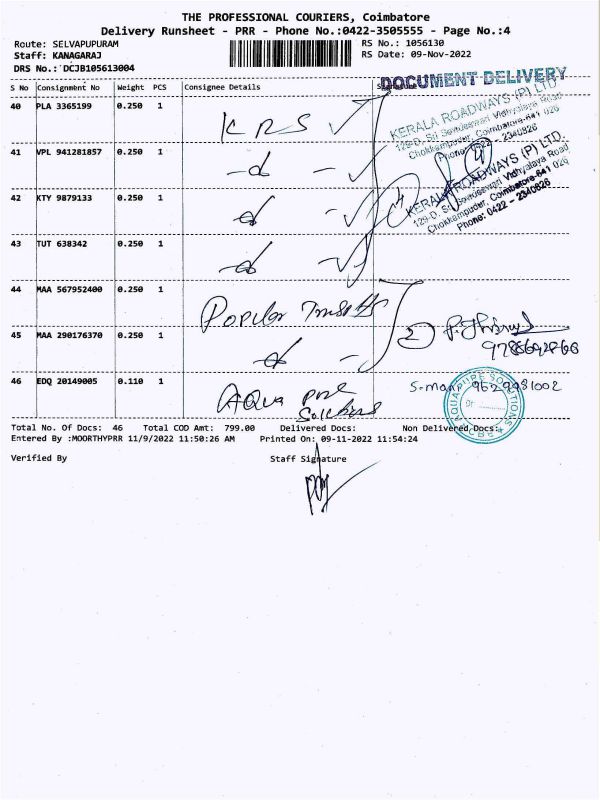 THE PROFESSIONAL COURIERS, Coimbatore
Delivery Runsheet - PRR - Phone No.:0422-3505555 - Page No.:4
Route: SELVAPUPURAM
RS No.: 1056130
Staff: KANAGARAJ
RS Date: 09-Nov-2022
DRS No.: DCJB105613004
DOCUMENT DELIVERY
S No Consignment No Weight PCS Consignee Details S
40 PLA 3365199 0.250 1 KRS
KERALA ROADWAYS (P) LTD
129-D, Sri Sowdeswari Vidhyalaya Road
Chokkampudur, Coimbatore-641 026
Phone: 0422 - 2340826
41 VPL 941281857 0.250 1 -d-
4
KERALA ROADWAYS (P) LTD.
129-D, Sri Sowdeswari Vidhyalaya Road
Chokkampudur, Coimbatore-641 026
Phone: 0422 - 2340826
42 KTY 9879133 0.250 1 d -
43 TUT 638342 0.250 1 d -
44 MAA 567952400 0.250 1 Popular
2
45 MAA 290176370 0.250 1 d -
46 EDQ 20149005 0.110 1 AQua pure
Solutions
9629981002
AQUAPURE SOLUTIONS
Total No. Of Docs: 46 Total COD Amt: 799.00 Delivered Docs: Non Delivered Docs:
Entered By :MOORTHYPRR 11/9/2022 11:50:26 AM Printed On: 09-11-2022 11:54:24
Verified By Staff Signature